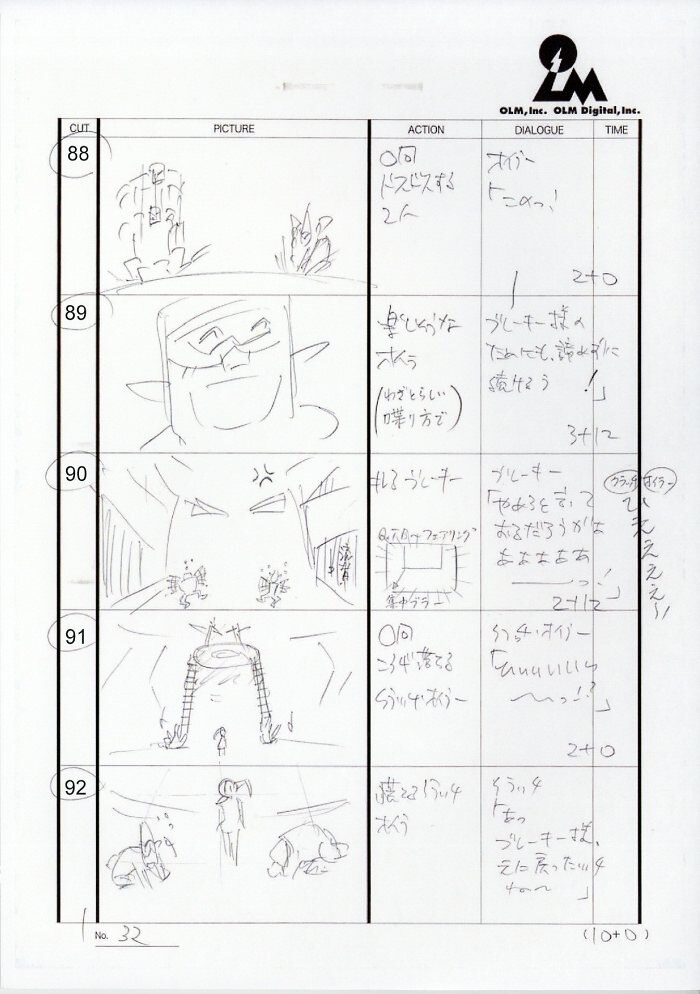 OLM
OLM, Inc. OLM Digital, Inc.
CUT PICTURE ACTION DIALOGUE TIME
88
○同
ドスドスする
2人
オイラー
「このっ!
2+0
89
オイラ
(わざとらしい
喋り方で)
ブレーキー様の
ためにも、諦めずに
続けろう!」
3+12
90
怒るブレーキー
集中ブラー
ブレーキー
「やめろと言って
おるだろうがよ
ぉぉぉぉぉ
ーっ!」
クラッチ オイラー
ひえぇぇぇぇ!
2+12
91
○同
ころげ落ちる
クラッチ・オイラー
クラッチ・オイラー
「ひぃぃぃぃぃ
〜〜っ!?」
2+0
92
オイラ
クラッチ
「あっ
ブレーキー様、
元に戻ったッチ
ねー」
No. 32
(10+0)